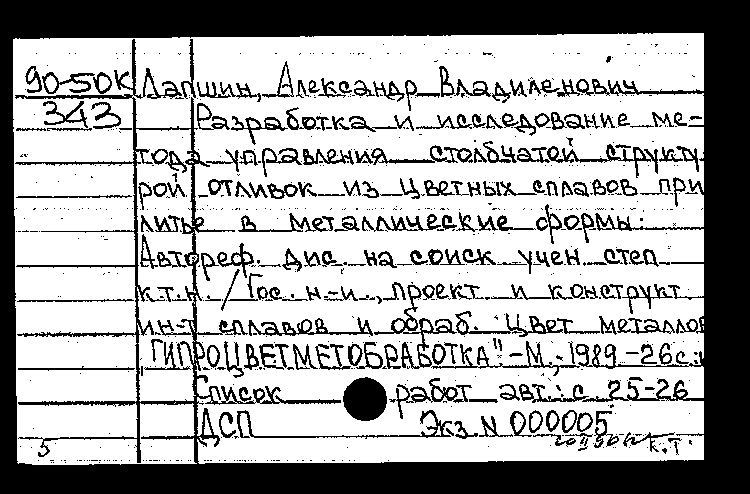 90-50К Лапшин, Александр Владиленович
343 Разработка и исследование ме-
тода управления столбчатой структу
рой отливок из цветных сплавов при
литье в металлические формы.
Автореф. дис. на соиск учен степ
к.т.н. / Гос. н.-и., проект и конструкт
ин-т сплавов и обраб. цвет металлов
"ГИПРОЦВЕТМЕТОБРАБОТКА".-М,-1989.-26с.:и
Список работ авт.: с. 25-26
ДСП Экз. N 000005
5 к.т.